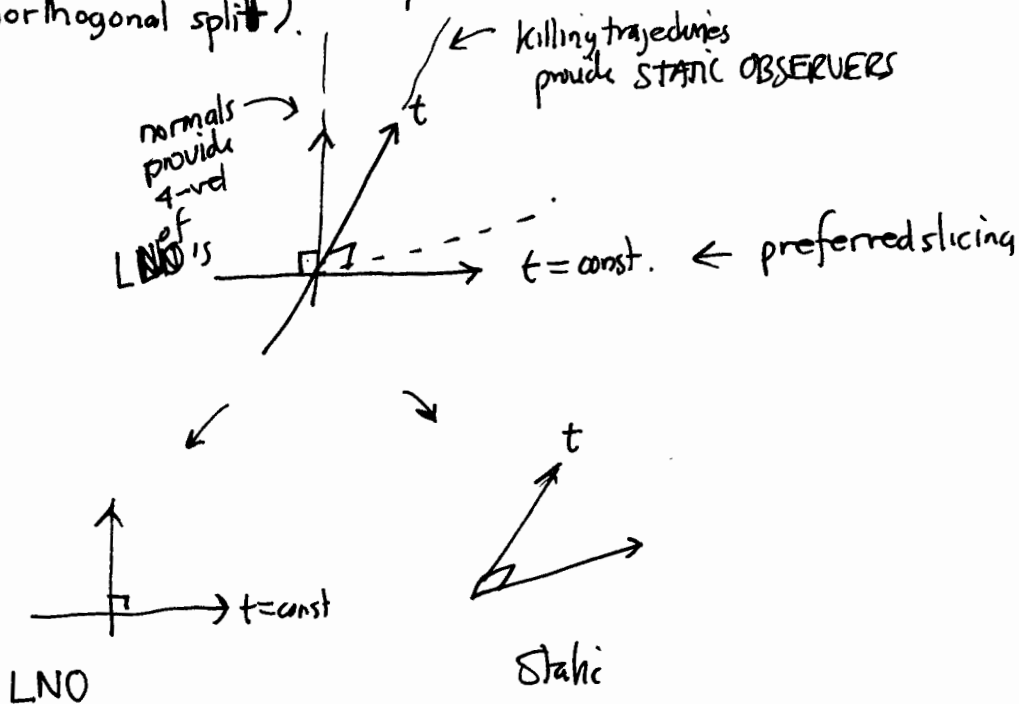 orthogonal split).
killing trajectories
provide STATIC OBSERVERS
t
normals
provide
4-vel
of
LNO's
t = const. ← preferred slicing
t
t=const
LNO
Static